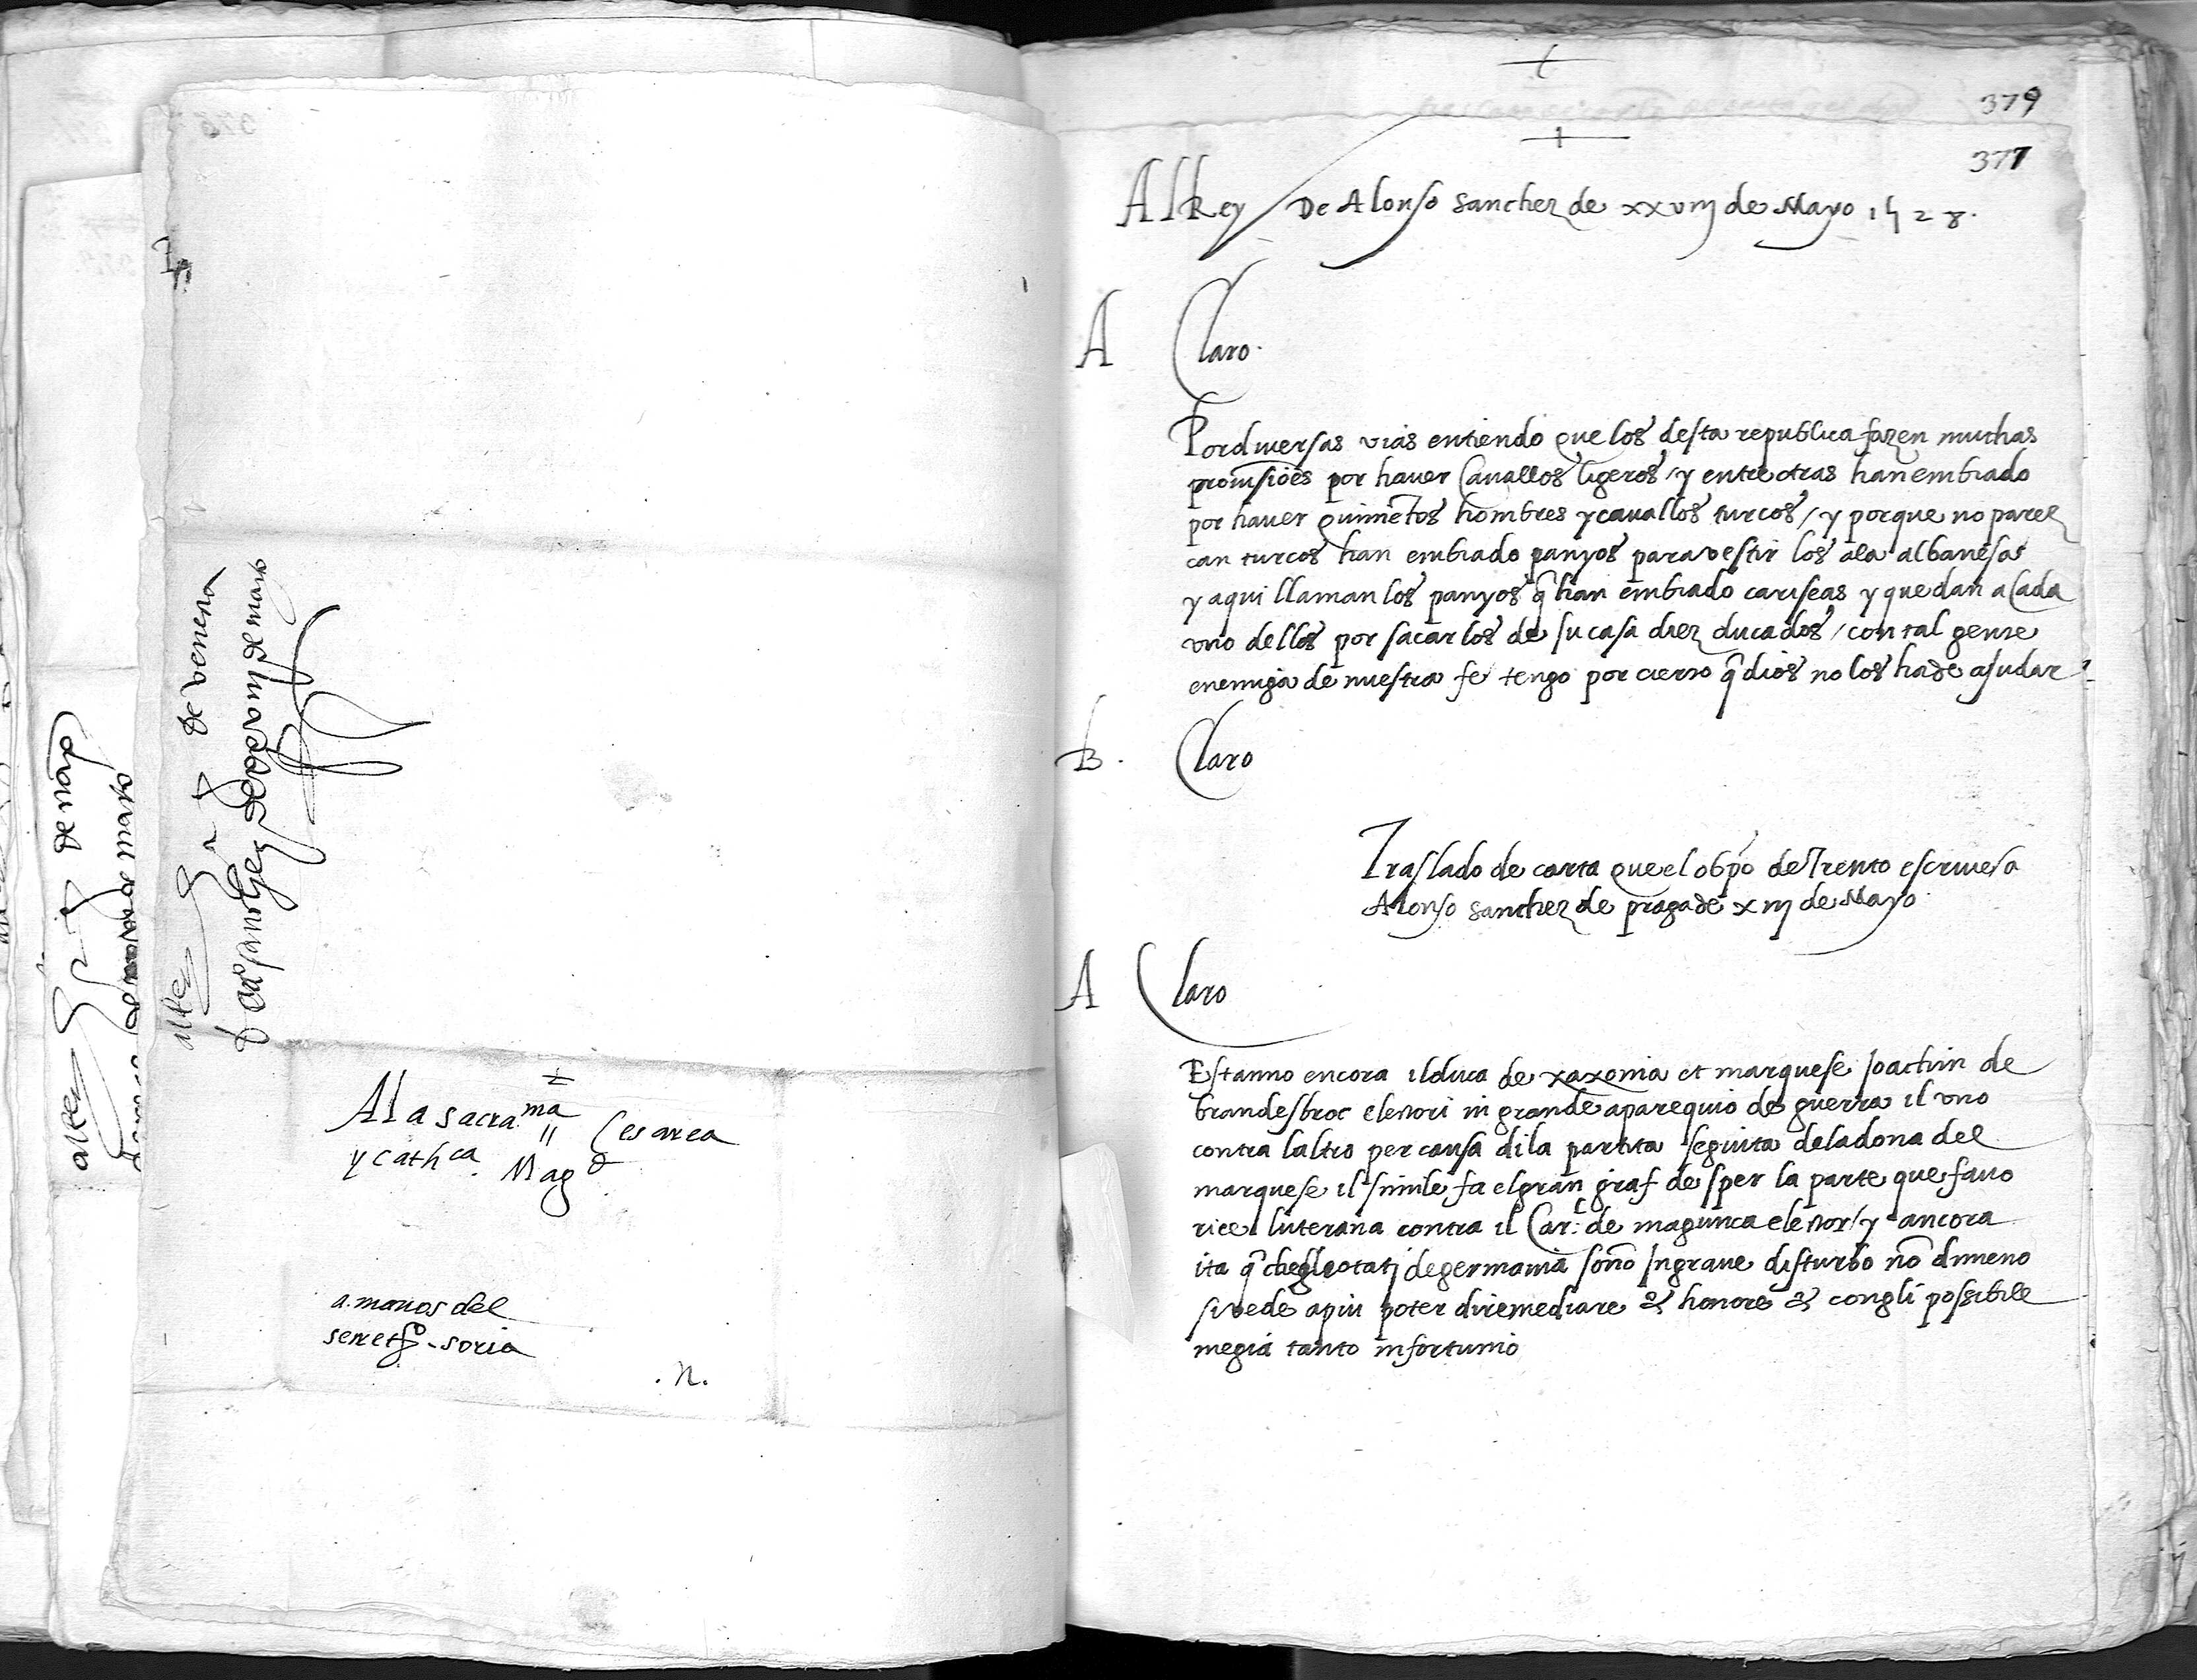 al Rey de venecia
de mayo
A la sacra ma Cesarea
y cathca. Magd
a manos del
secretº soria
.n.
379
377
Al Rey De Alonso sanchez de xxviij de Mayo 1528.
A Claro.
Por diversas vias entiendo que los desta republica fazen muchas
provisiões por haver Cavallos ligeros / y entre otras han embiado
por haver quiniẽtos hombres y cavallos turcos / y porque no parez
can turcos han embiado panyos para vestir los ala albanesa
y aqui llaman los panyos q̃ han embiado cariseas y que dan a Cada
uno dellos por sacarlos de su casa diez ducados / con tal gente
enemiga de nuestra fe tengo por cierto q̃ dios no los ha de ajudar
B. Claro
Traslado de carta que el obpo de Trento escrive a
Alonso sanchez de praga de xiij de Mayo
A Claro
Estanno encora il duca de xaxonia et marquese Joachin de
brandesbroc eletori in grande aparequio de guerra il uno
contra laltro per causa di la partita seguita de la dona del
marquese il simile fa el gran graf de sper la parte que favo
rice luterana contra il Carl. de magunca eletor / y ancora
ita q̃ che gli stati de germania sono In grave disturbo nõ dimeno
si vede a piu poter di remediare & honore & con gli possibile
megia tanto infortunio